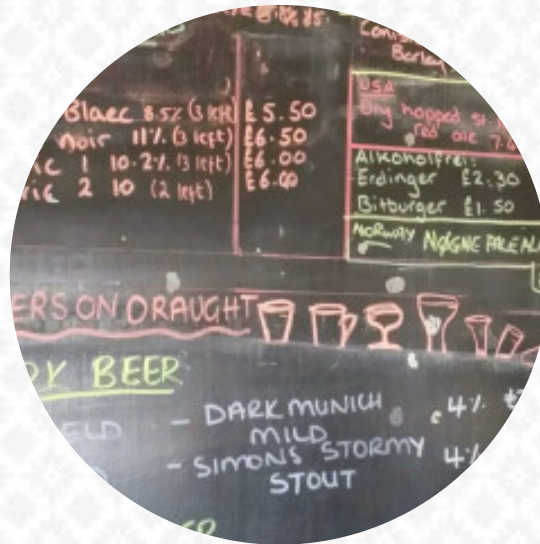 Blaec 8.5% (3 left) £5.50
Noir 11% (3 left) £6.50
1 10.2% (3 left) £6.00
2 10 (2 left) £6.00
Barley
USA
Dry hopped
red ale
Alkoholfrei:
Erdinger £2.30
Bitburger £1.50
NORWAY NØGNE PALE
ERS ON DRAUGHT
BEER
ELD - DARK MUNICH 4%
MILD
- SIMONS STORMY 4%
STOUT